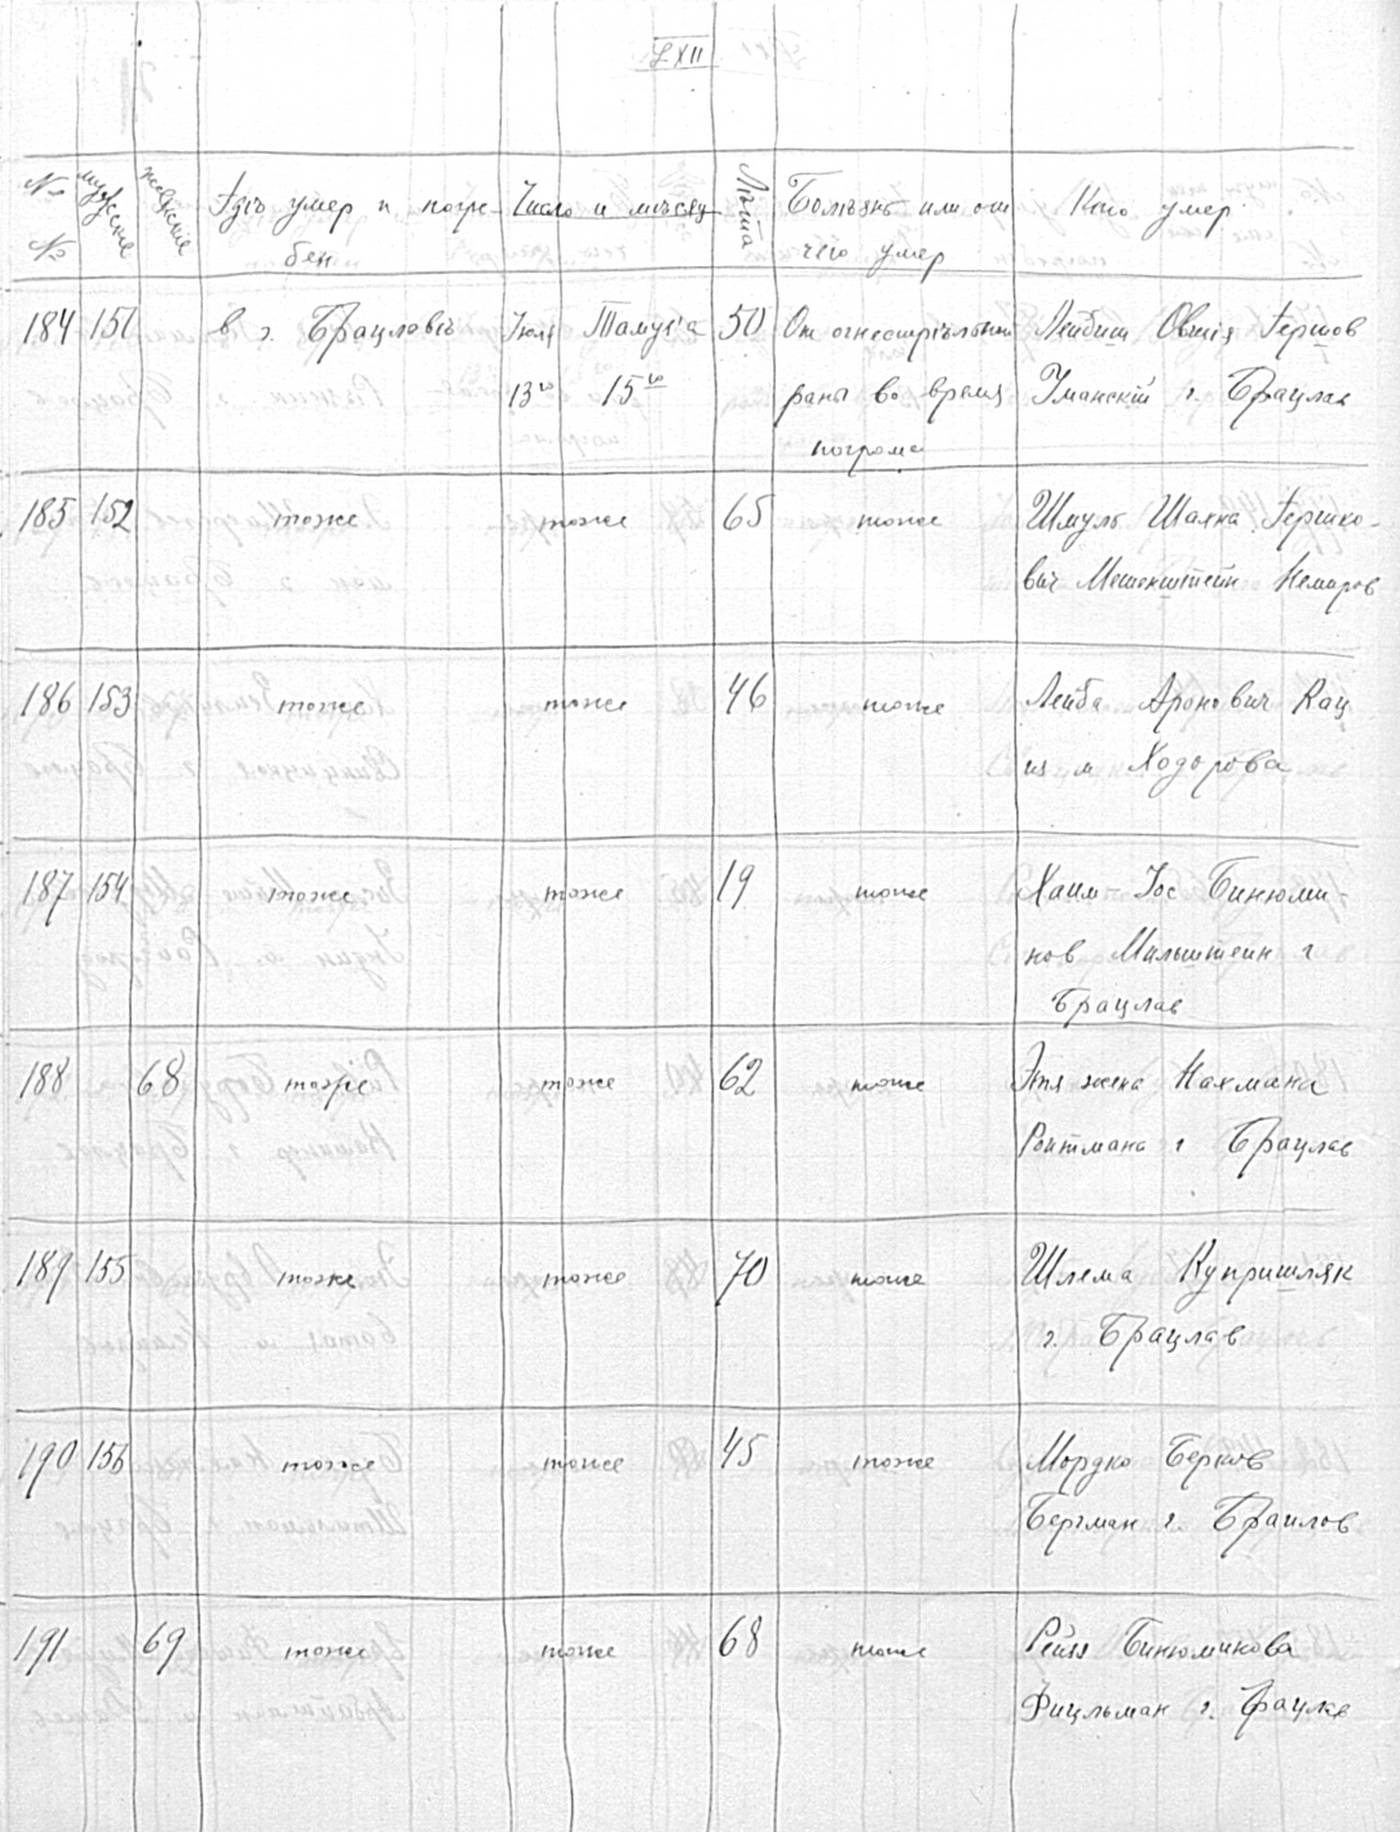 LXII
№ №
мужскіе
женскіе
Гдѣ умер и погре-
бен
Число и мѣсяц
Лѣта
Болѣзнь или от
чего умер
Кто умер
184 151 в г. Брацловѣ Іюля Тамуза 50 От огнестрѣльной Лейбиш Овшія Гершов
13го 15го раны во время Уманскій г. Брацлав
погрома
185 152 тоже тоже 65 тоже Шмуль Шахна Гершко-
вич Мешенштейн Немиров
186 153 тоже тоже 46 тоже Лейба Аронович Кац
из м Ходорова
187 154 тоже тоже 19 тоже Хаим-Іос Бинюми-
нов Мильштеин г
Брацлав
188 68 тоже тоже 62 тоже Этя жена Нахмана
Роитмана г Брацлав
189 155 тоже тоже 70 тоже Шлема Купришляк
г. Брацлав
190 156 тоже тоже 45 тоже Мордко Берков
Бергман г. Браилов
191 69 тоже тоже 68 тоже Рейзя Бинюминова
Фицльман г. Брацлав